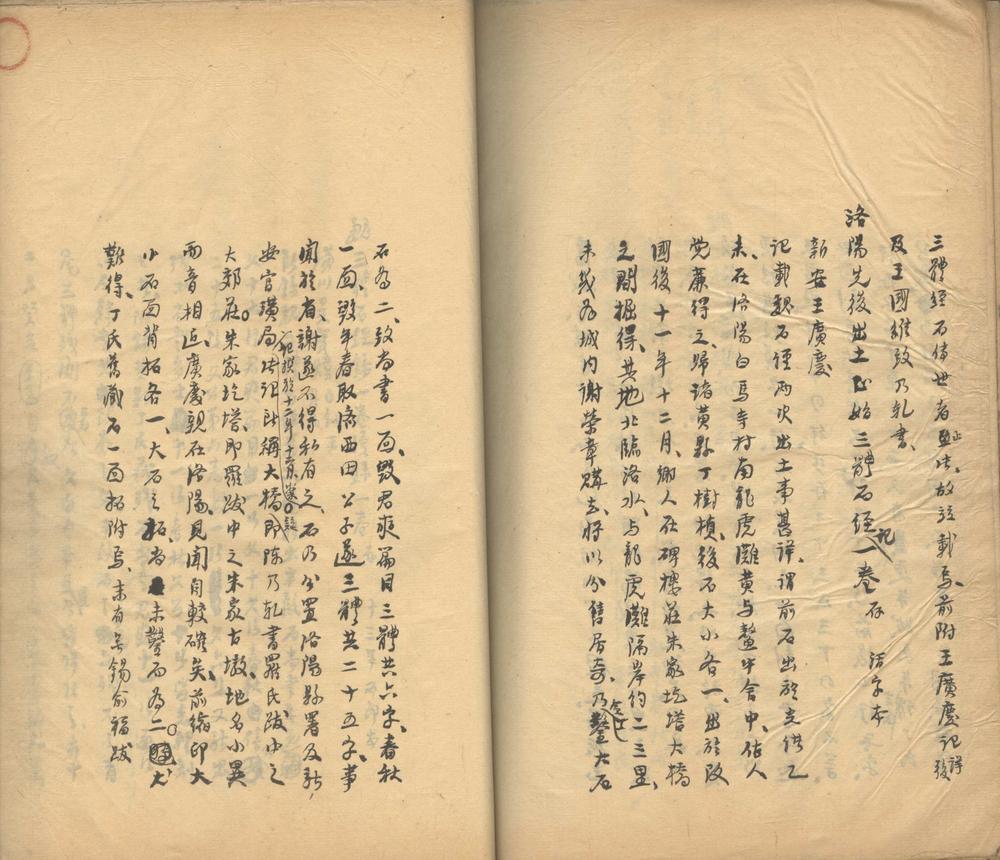 三體經石傳世者止此、故並載焉、前附王廣慶記、後
及王國維致乃乾書、
洛陽先後出土正始三體石經記一卷 存 活字本
新安王廣慶
記載魏石經兩次出土事甚詳、謂前石出於光緒乙
未、在洛陽白馬寺村南龍虎灘黃与鰲牛舍中、估人
党廉得之、歸諸黃縣丁樹楨、後石大小各一、出於改
國後十一年十二月、鄉人在碑樓莊朱家圪塔大橋
之間掘得、其地北臨洛水、与龍虎灘隔岸約二三里、
未幾為城內謝榮章購去、將以分售居奇、乃鑿大石
石為二、致尚書一面、毀君奭篇目三體共六字、春秋
一面、毀年春取濟西田公子遂三體共二十五字、事
聞於省、謝遂不得私有之、石乃分置洛陽縣署及新
安官礦局、 記撰於十二年十二月 此稱大橋、即陈乃乾書羅氏跋中之
大郊莊、朱家圪塔、即羅跋中之朱家古墩、地名小異
而音相近、廣慶親在洛陽、見聞自較確矣、前縮印大
小石面背拓各一、大石之拓、尚未鑿而為二、尤
難得、丁氏舊藏石一面拓附焉、末有無錫俞福跋